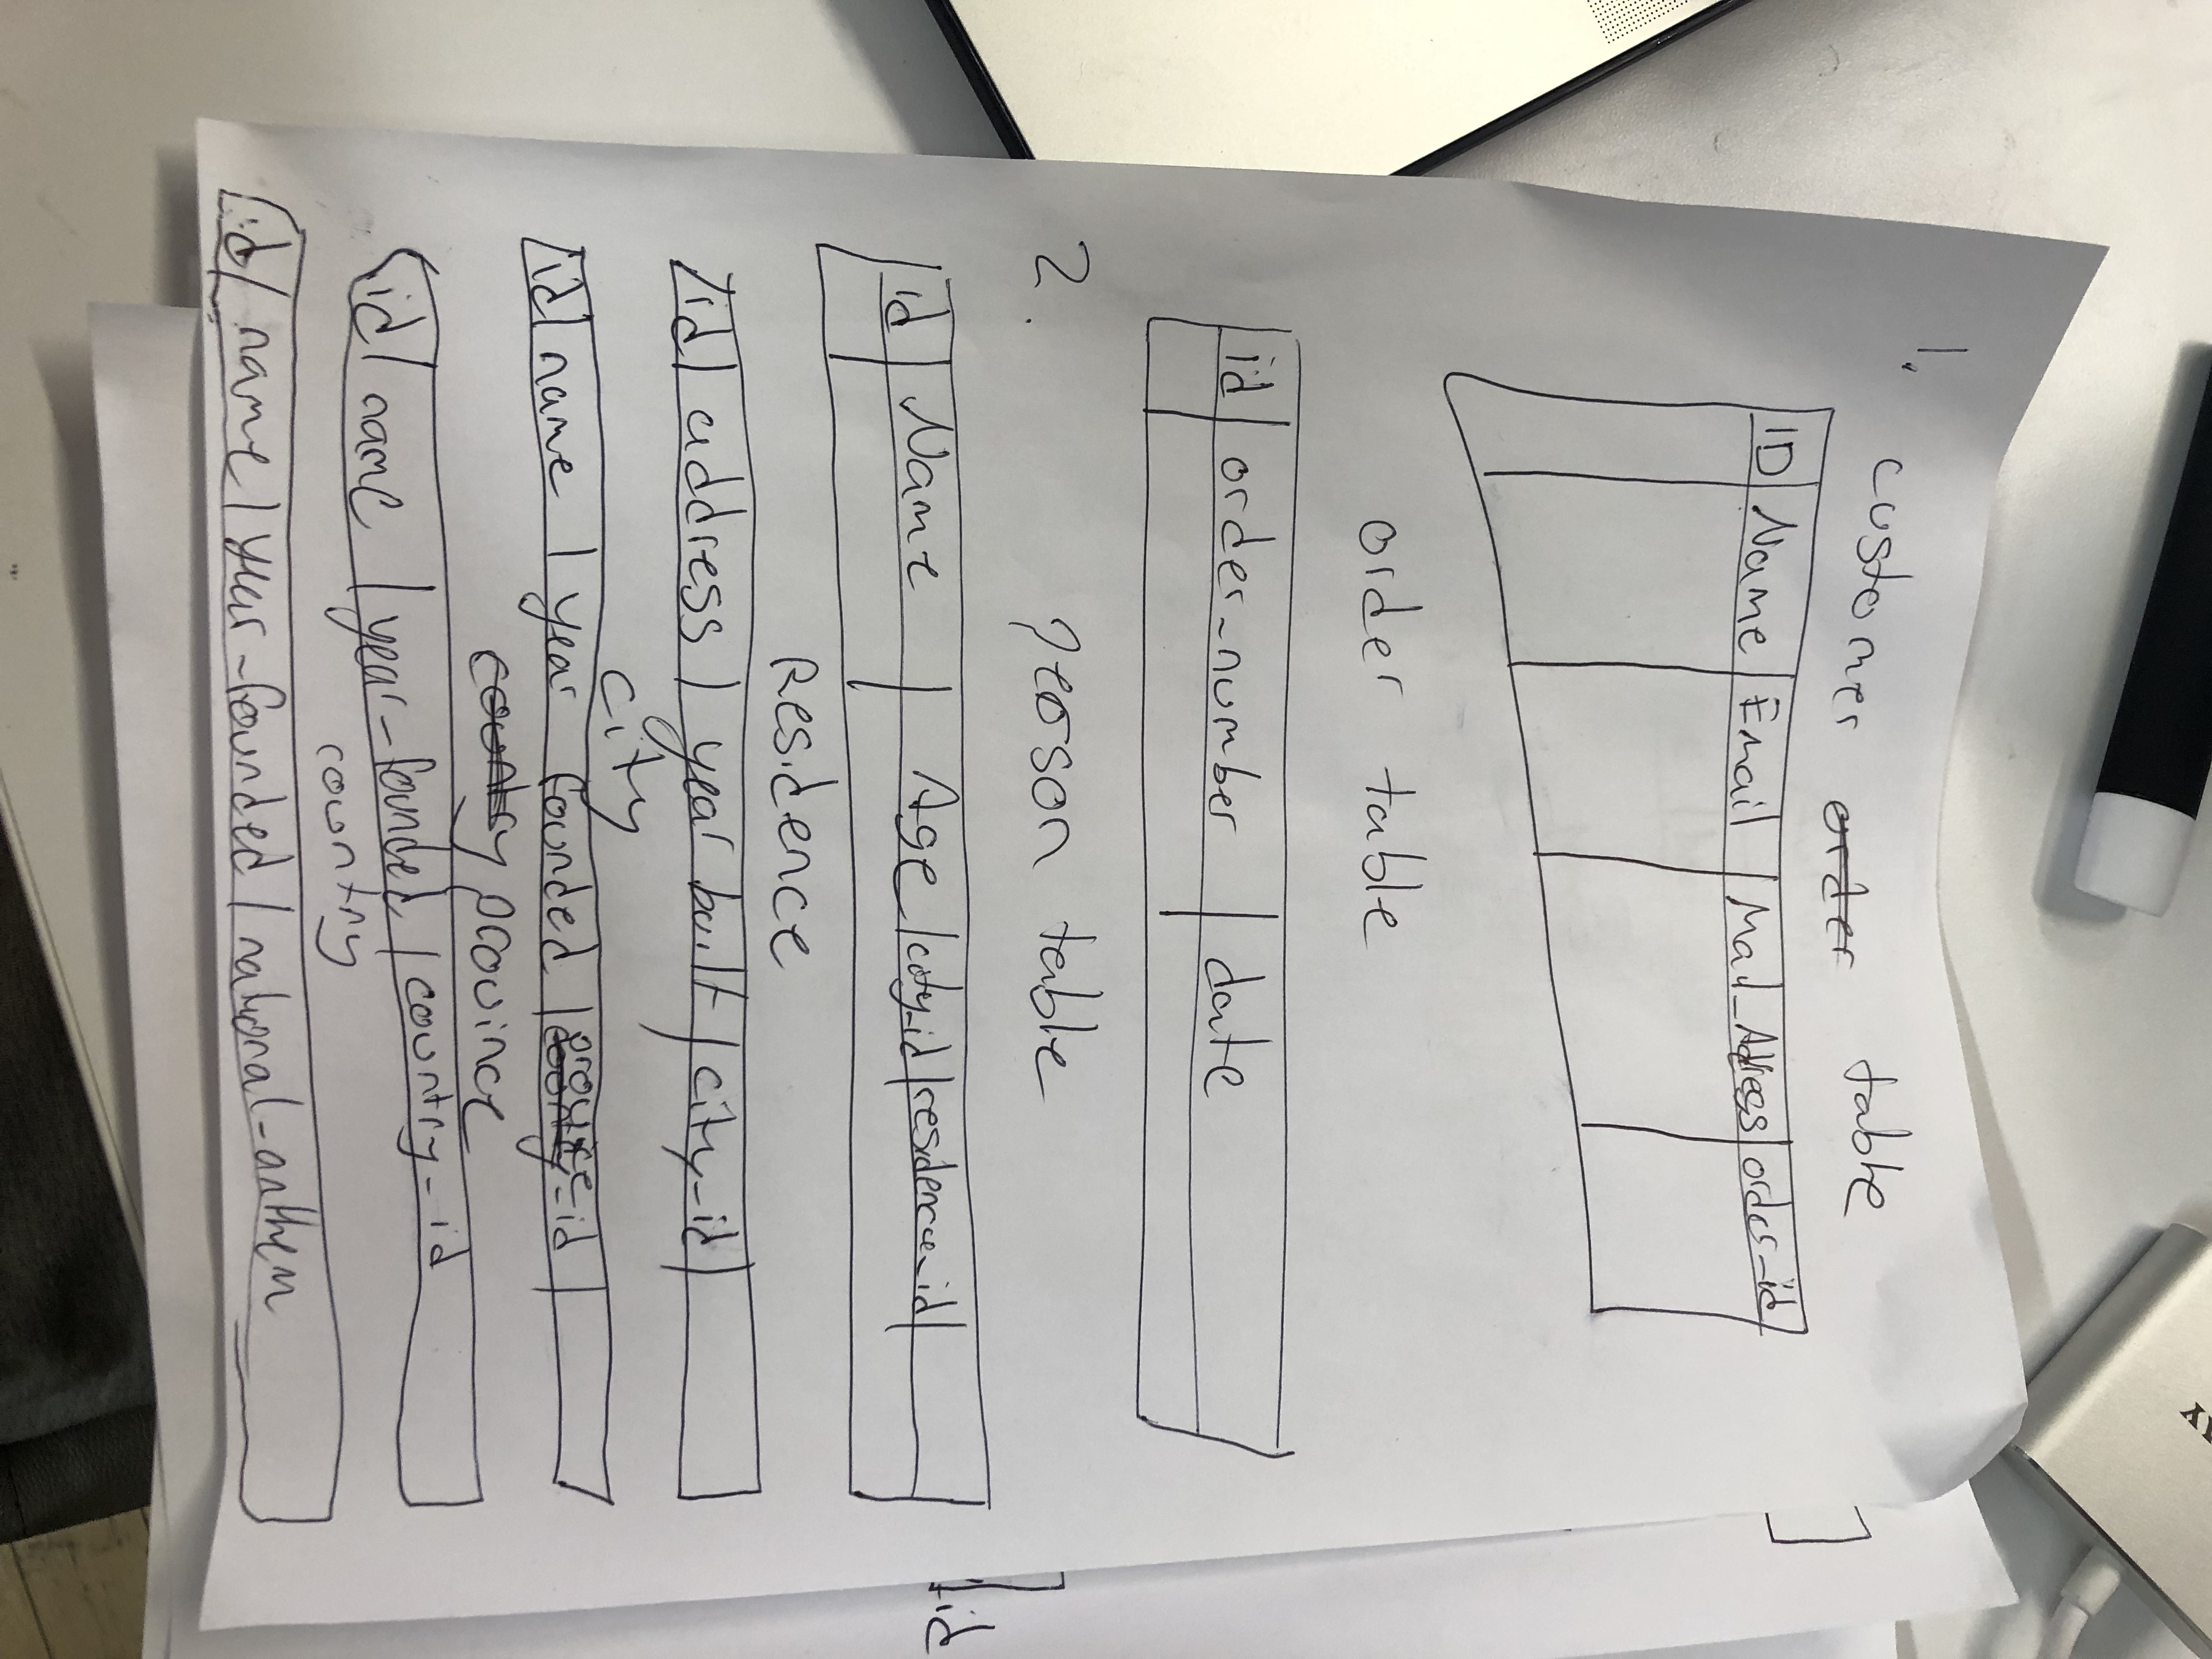 1. customer order table
ID Name Email Mail_Address order_id
order table
id order_number date
2. person table
id Name Age city_id residence_id
Residence
id address year built city_id
city
id name year founded province_id
country province
id name year_founded country_id
country
id name year_founded national_anthem